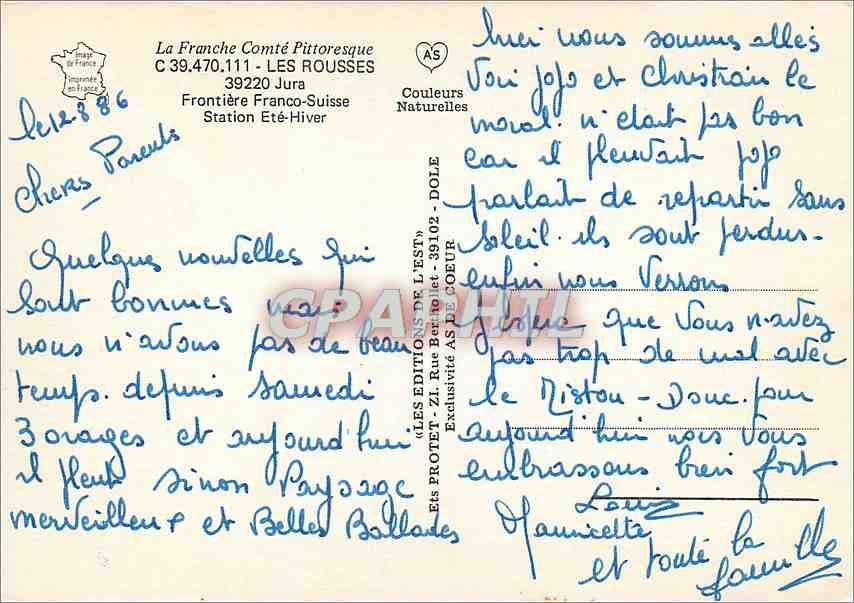 Image
de France
Imprimée
en France
La Franche Comté Pittoresque
C 39.470.111 - LES ROUSSES
39220 Jura
Frontière Franco-Suisse
Station Eté-Hiver
A'S
Couleurs
Naturelles
le 12 8 86
Chers Parents
Quelques nouvelles qui
sont bonnes mais
nous n'avons pas de beau
temps. depuis samedi
3 orages et aujourd'hui
il pleut sinon Paysage
merveilleux et Belles Ballades
«LES EDITIONS DE L'EST»
Ets PROTET - ZI. Rue Berthollet - 39102 - DOLE
Exclusivité AS DE COEUR
CPAPHIL
hier nous sommes allés
voir jojo et Christian le
moral n'était pas bon
car il pleuvait jojo
parlait de repartir sans
soleil. ils sont perdus-
enfin nous verrons
j'espère que vous n'avez
pas trop de mal avec
le Miston - Donc pour
aujourd'hui nous vous
embrassons bien fort
Louis
Mauricette
et toute la
famille